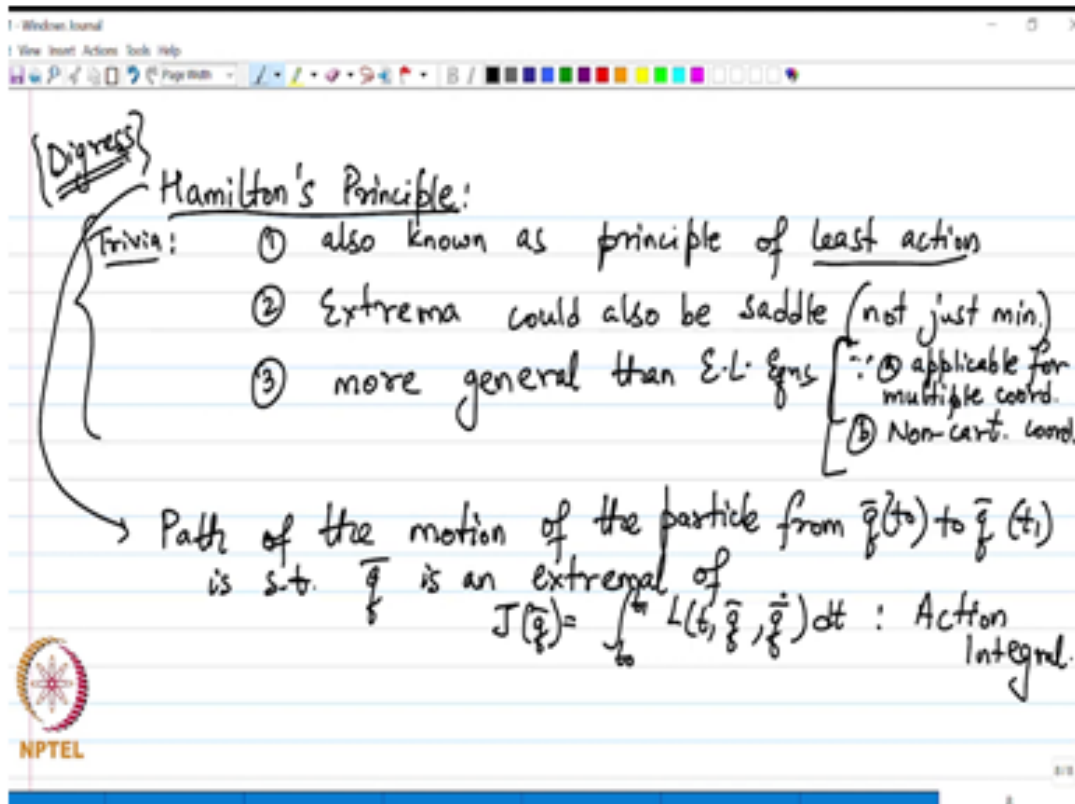 - Windows Journal
View Insert Actions Tools Help
Page Width
B I
{Digress}
Hamilton's Principle:
Trivia: ① also known as principle of least action
② Extrema could also be saddle (not just min.)
③ more general than E.L. Eqns [∵ ⓐ applicable for
multiple coord.
ⓑ Non-cart. coord.
→ Path of the motion of the particle from q̄(t₀) to q̄(t₁)
is s.t. q̄ is an extremal of
J(q̄) = ∫_{t₀}^{t₁} L(t, q̄, q̄̇) dt : Action
Integral.
NPTEL